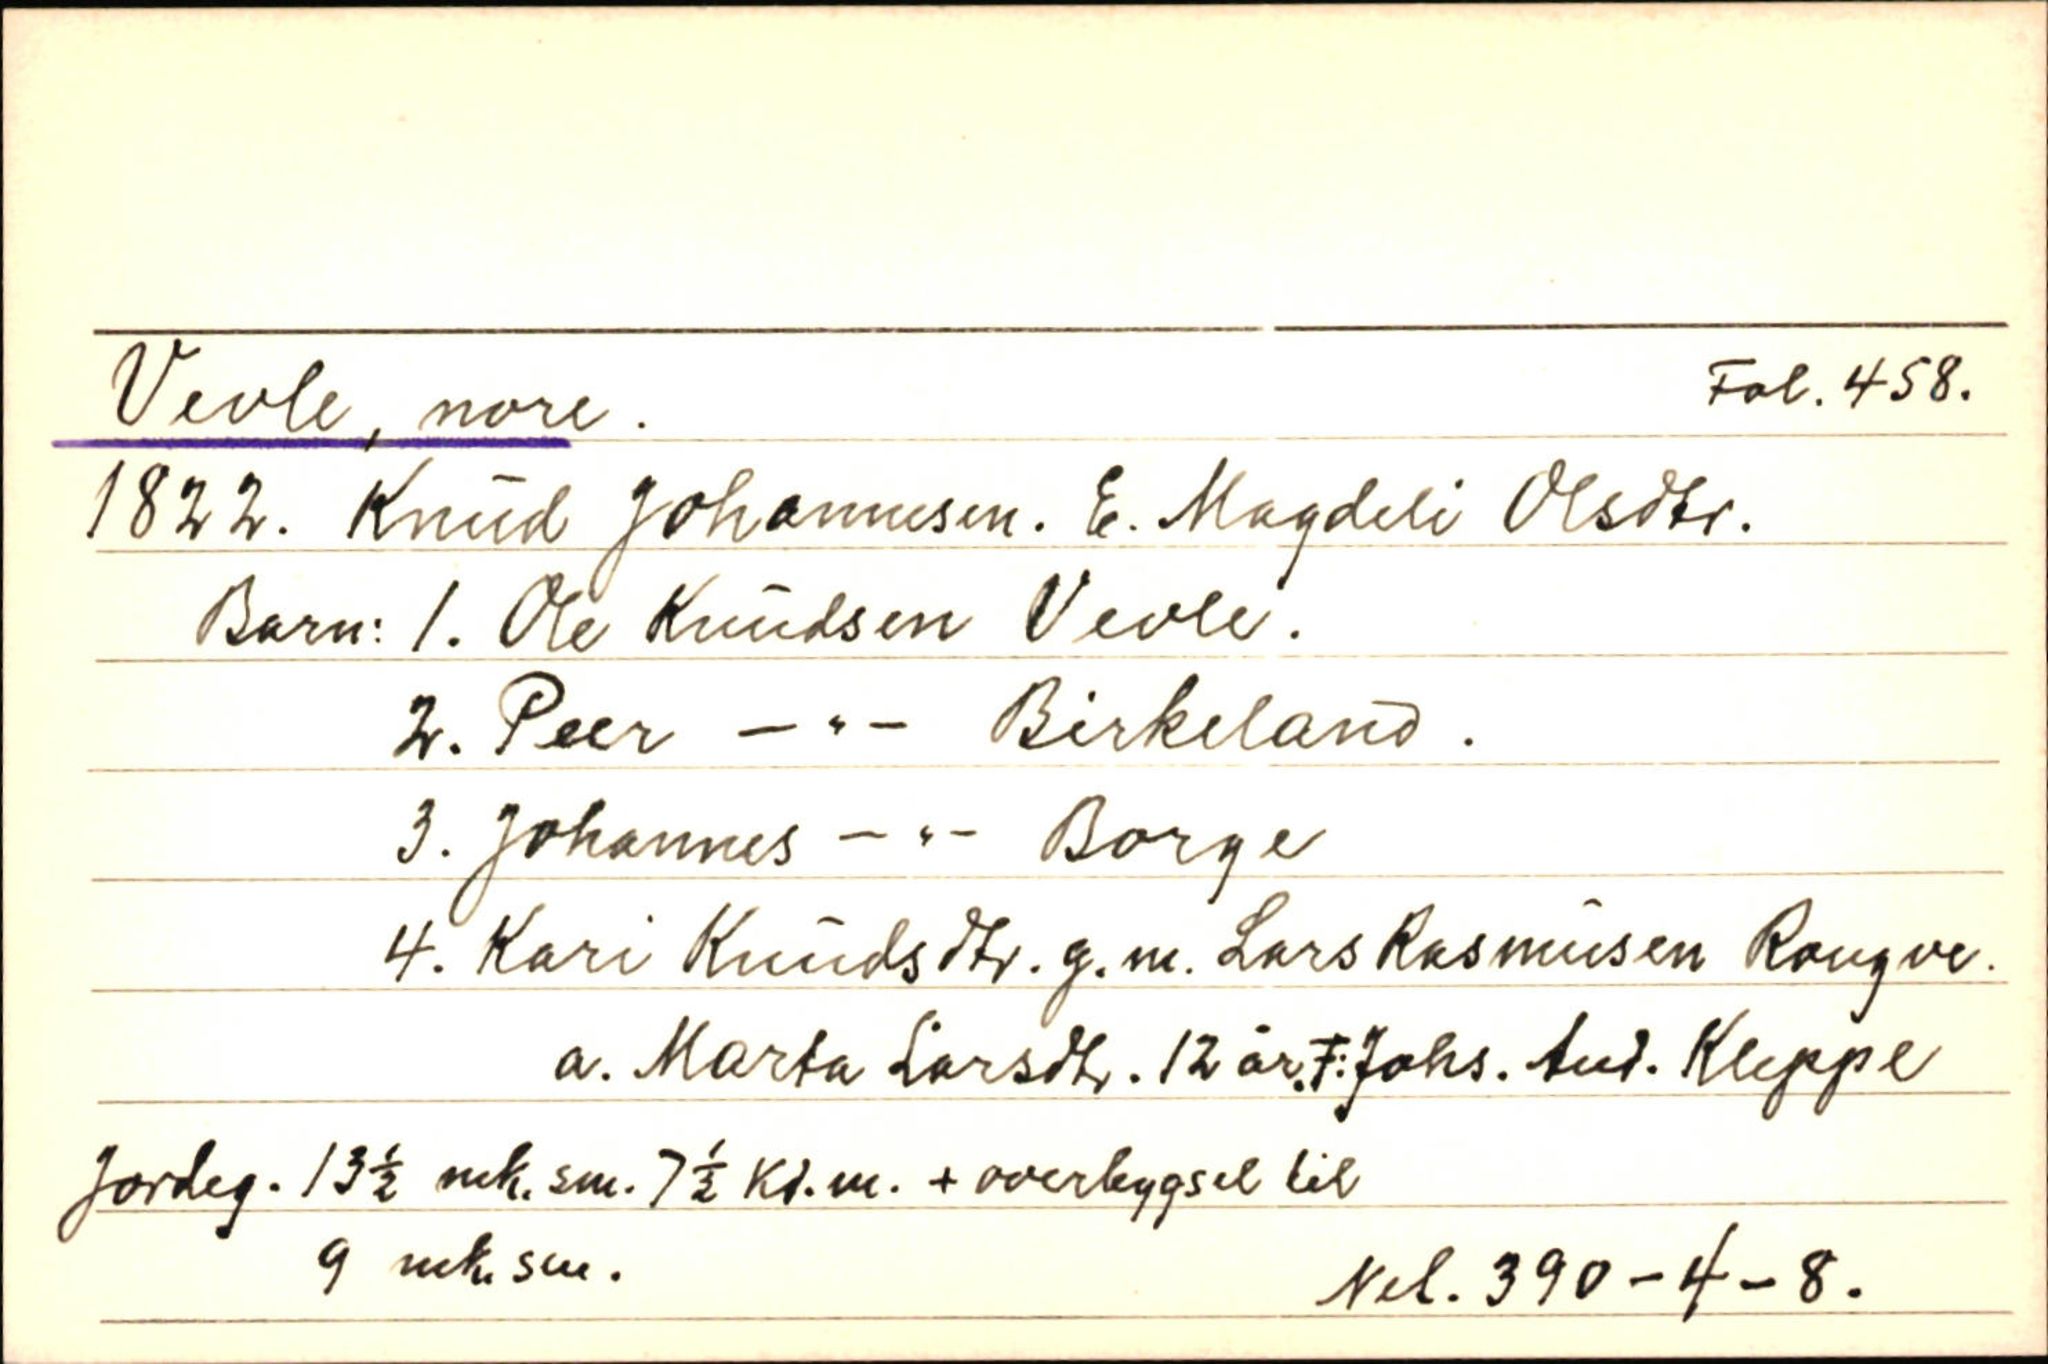 Vevle, nore. Fol. 458.
1822. Knud Johannesen. E. Magdeli Olsdtr.
Barn: 1. Ole Knudsen Vevle.
2. Peer —"— Birkeland.
3. Johannes —"— Borge
4. Kari Knudsdtr. g.m. Lars Rasmusen Rongve.
a. Marta Larsdtr. 12 år. F: Johs. And. Kleppe
Jordeg. 13½ mk. sm. 7½ Kd. m. + overbygsel til
9 mk. sm. Nel. 390-4-8.